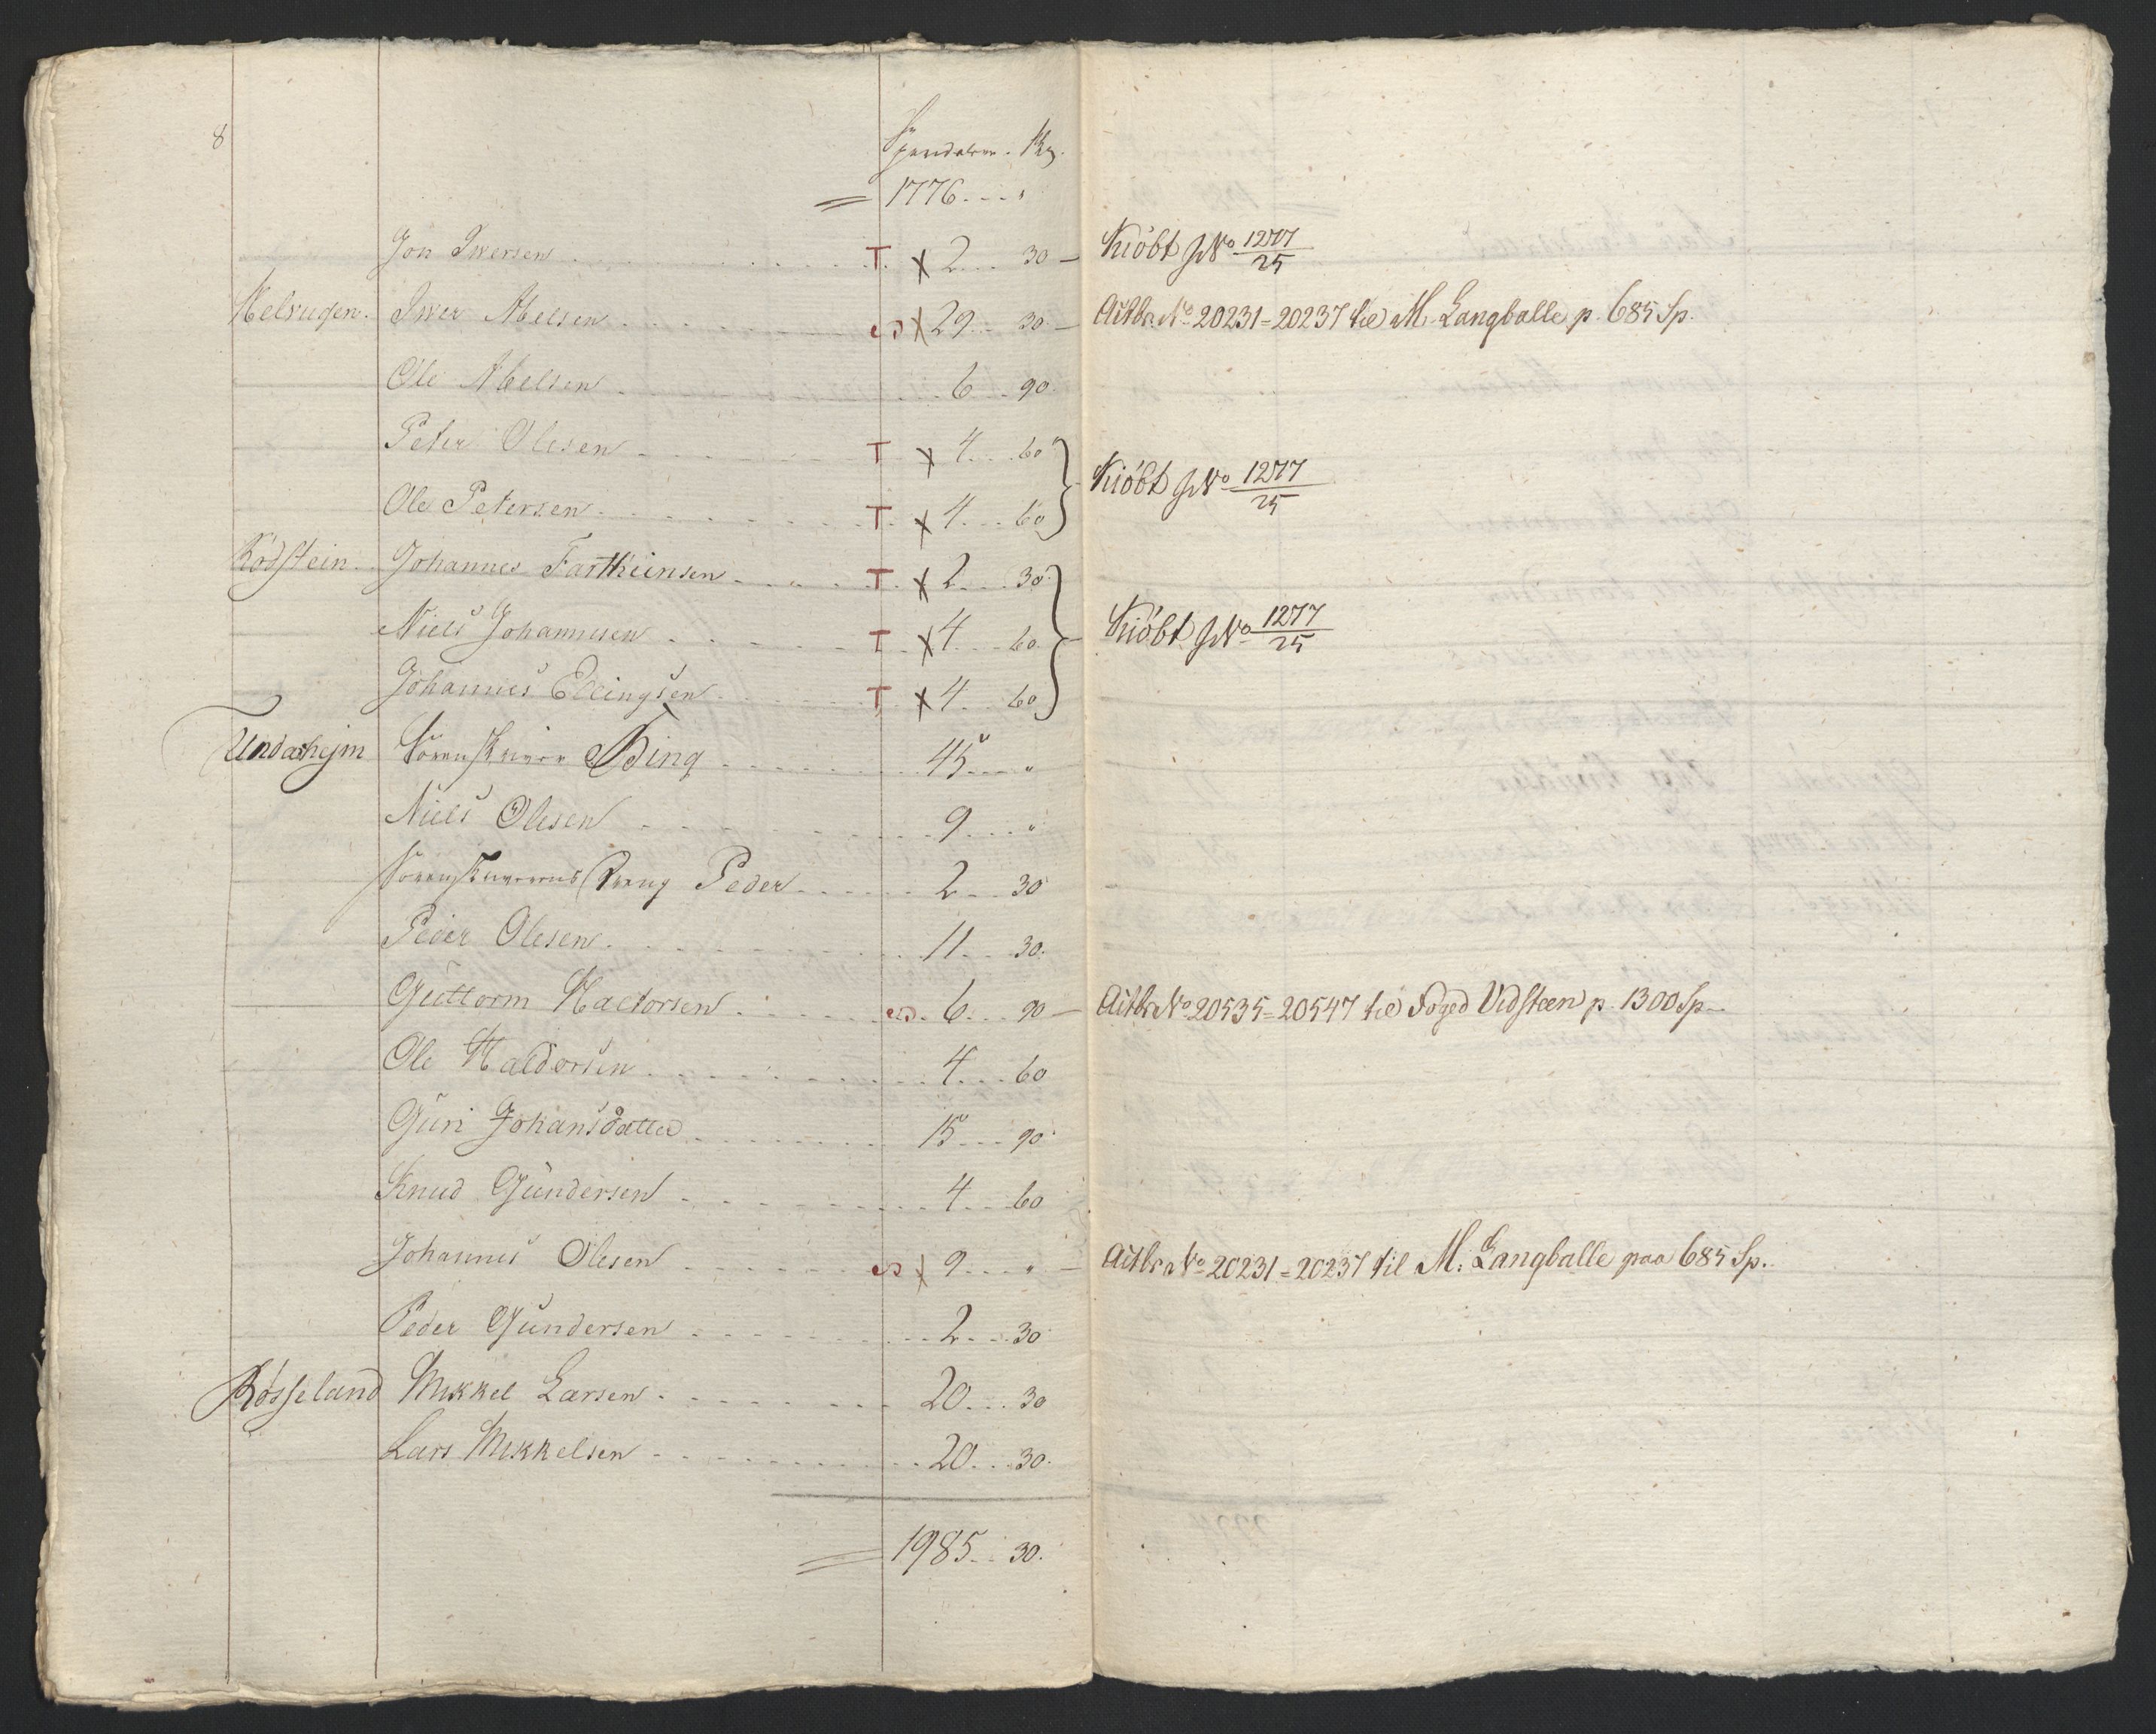 8
Speciedaler. Sk.
1776 . . . "
Jon Iwersen . . . T. x 2 . . . 30 — Kiöbt pNo 1277/25
Iwer Abelsen . . . x 29 . . 30 — Actbr. No 20231=20237 til M. Langballe p. 685 Sp.
Ole Abelsen . . . 6 . . 90.
Peter Olesen . . . T x 4 . . . 60
Ole Petersen . . . T. x 4 . . . 60 } Kiöbt pNo 1277/25
Rödstein. Johannes Fartheinsen . . . T. x 2 . . . 30
Niels Johannesen . . . T. x 4 . . . 60 } — Kiöbt pNo 1277/25
Johannes Ellingsen . . . T. x 4 . . . 60
Undarhejm Sorenskriver Bing . . . 45 . . . "
Niels Olesen . . . 9 . . . "
Sorenskriverens Dreng Peder . . . 2 . . 30
Peder Olesen . . . 11 . . 30.
Guttorm Haldorsen . . . 6 . . . 90 — Actbr No 20535=20547 til Foged Vidsteen p. 1300 Sp.
Ole Haldorsen . . . 4 . . . 60
Guri Johansdatter . . . 15 . . . 90
Knud Gundersen . . . 4 . . . 60
Johannes Olesen . . . x 9 . . . " — Actbr No 20231=20237 til M. Langballe paa 685 Sp.
Peder Gundersen . . . 2 . . . 30
Rösseland Mikkel Larsen . . . 20 . . . 30
Lars Mikkelsen . . . 20 . . . 30.
1985 . . 30.